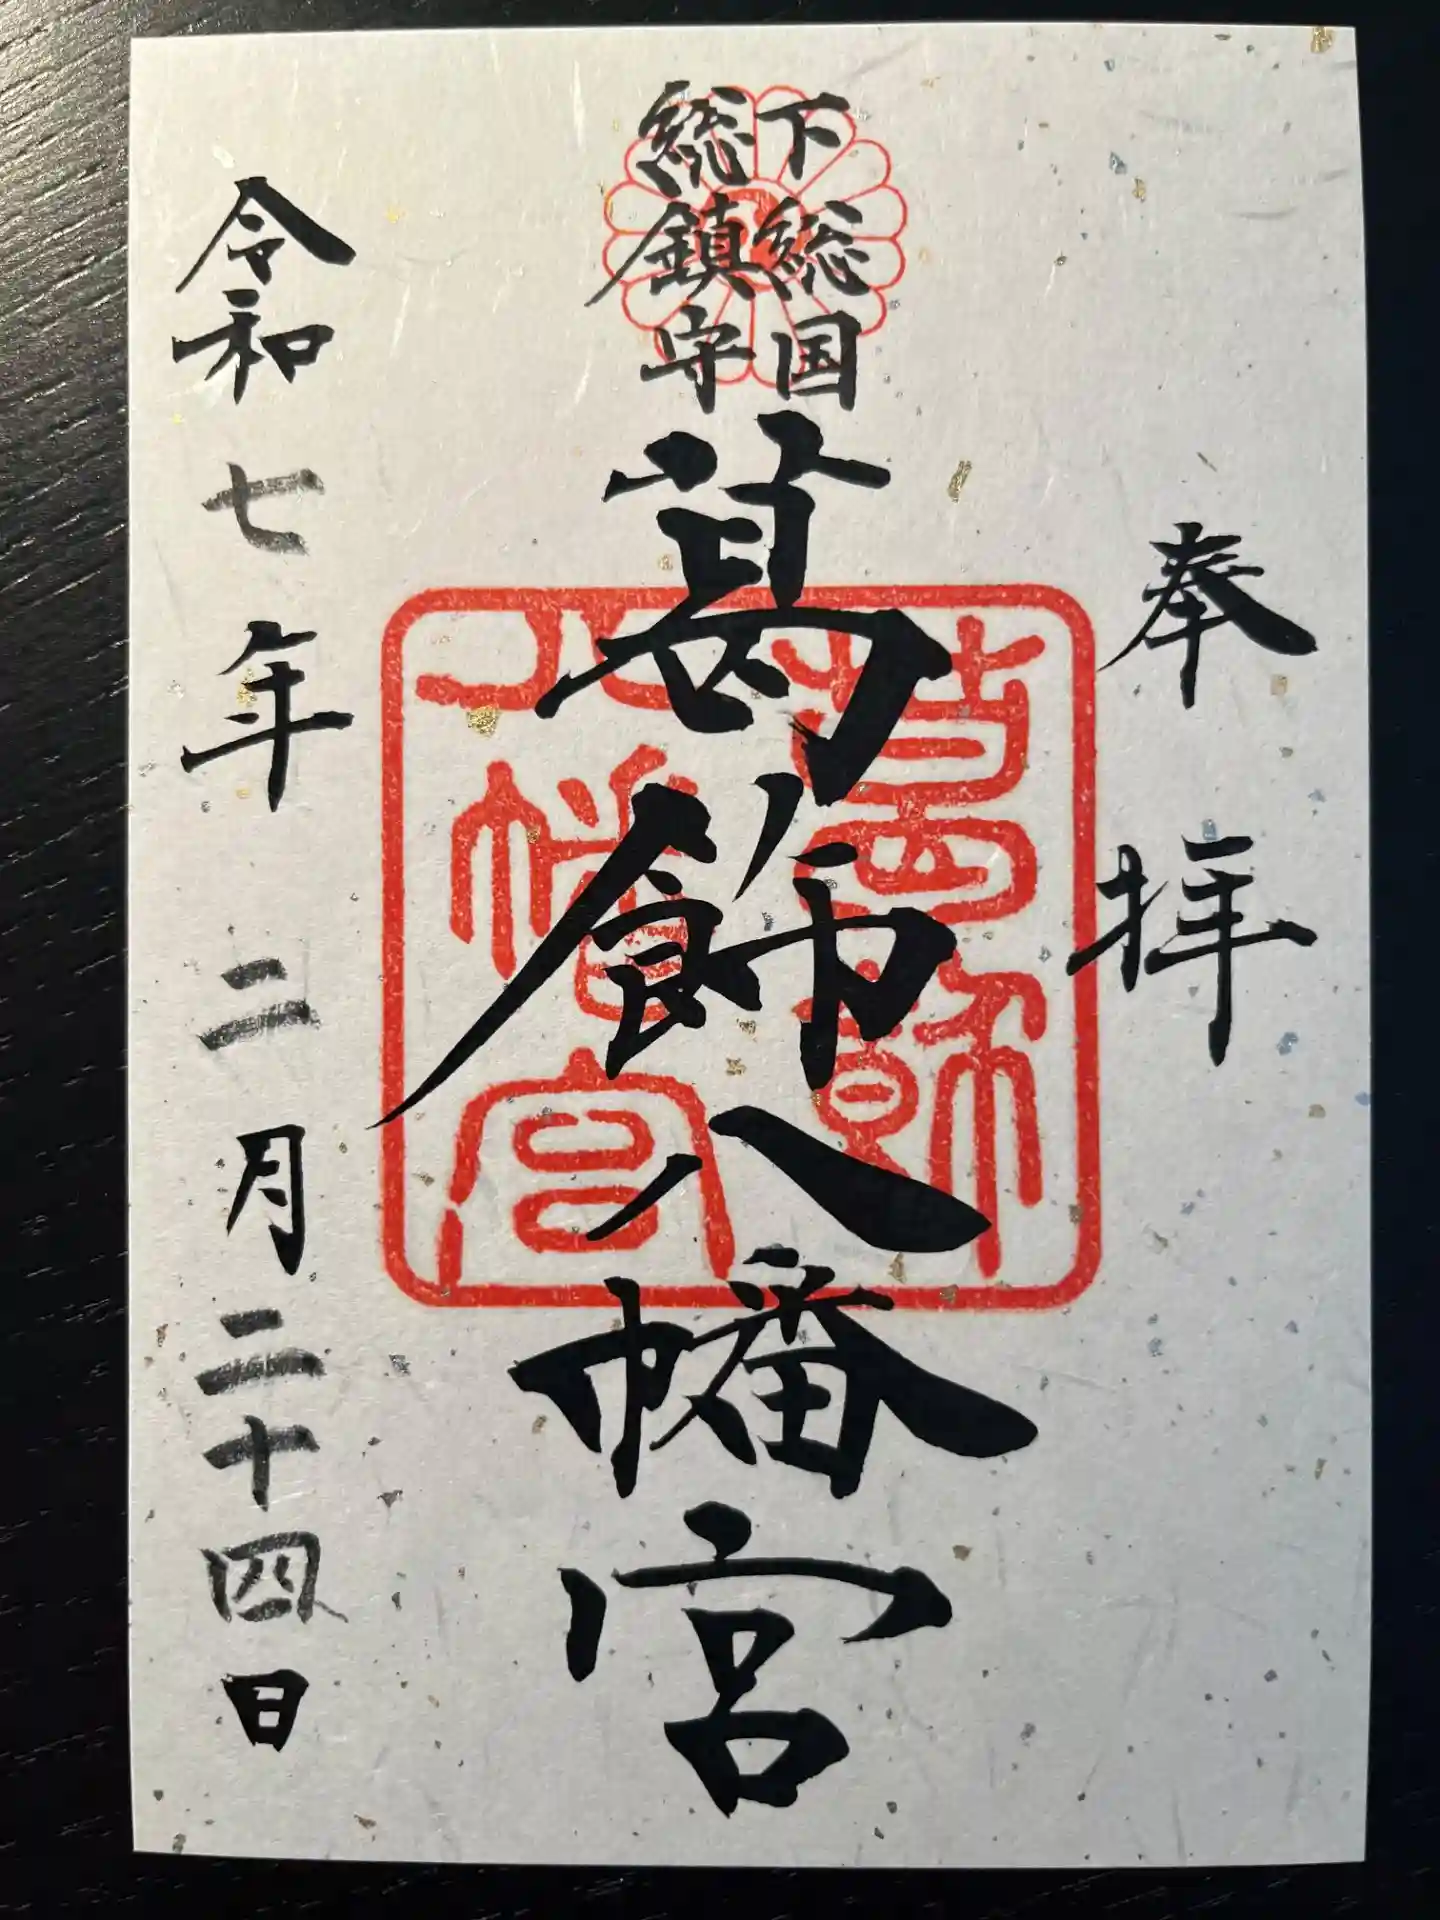 奉拝
下総国
総鎮守
葛飾八幡宮
葛飾
八幡宮
令和七年二月二十四日